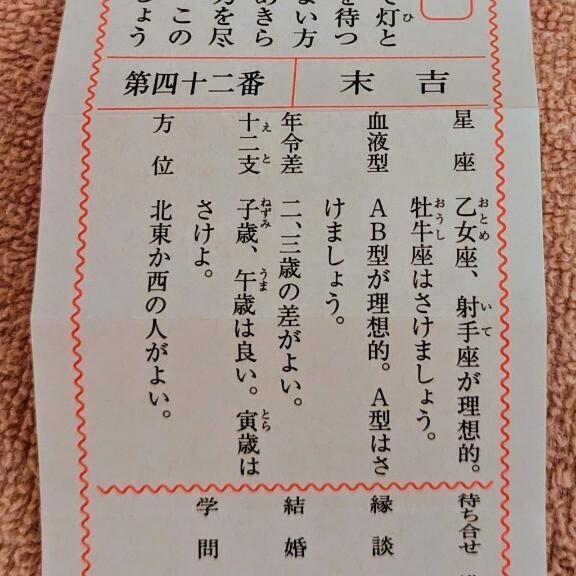 灯と
ひ
を待つ
ない方
きら
を尽
この
しょう
第四十二番
末吉
星座
乙女座、射手座が理想的。
おとめ
いて
牡牛座はさけましょう。
おうし
血液型
AB型が理想的。A型はさ
けましょう。
年令差
二、三歳の差がよい。
十二支
えと
子歳、午歳は良い。寅歳は
ねずみ
うま
とら
さけよ。
方位
北東か西の人がよい。
待ち合せ
縁談
結婚
学問